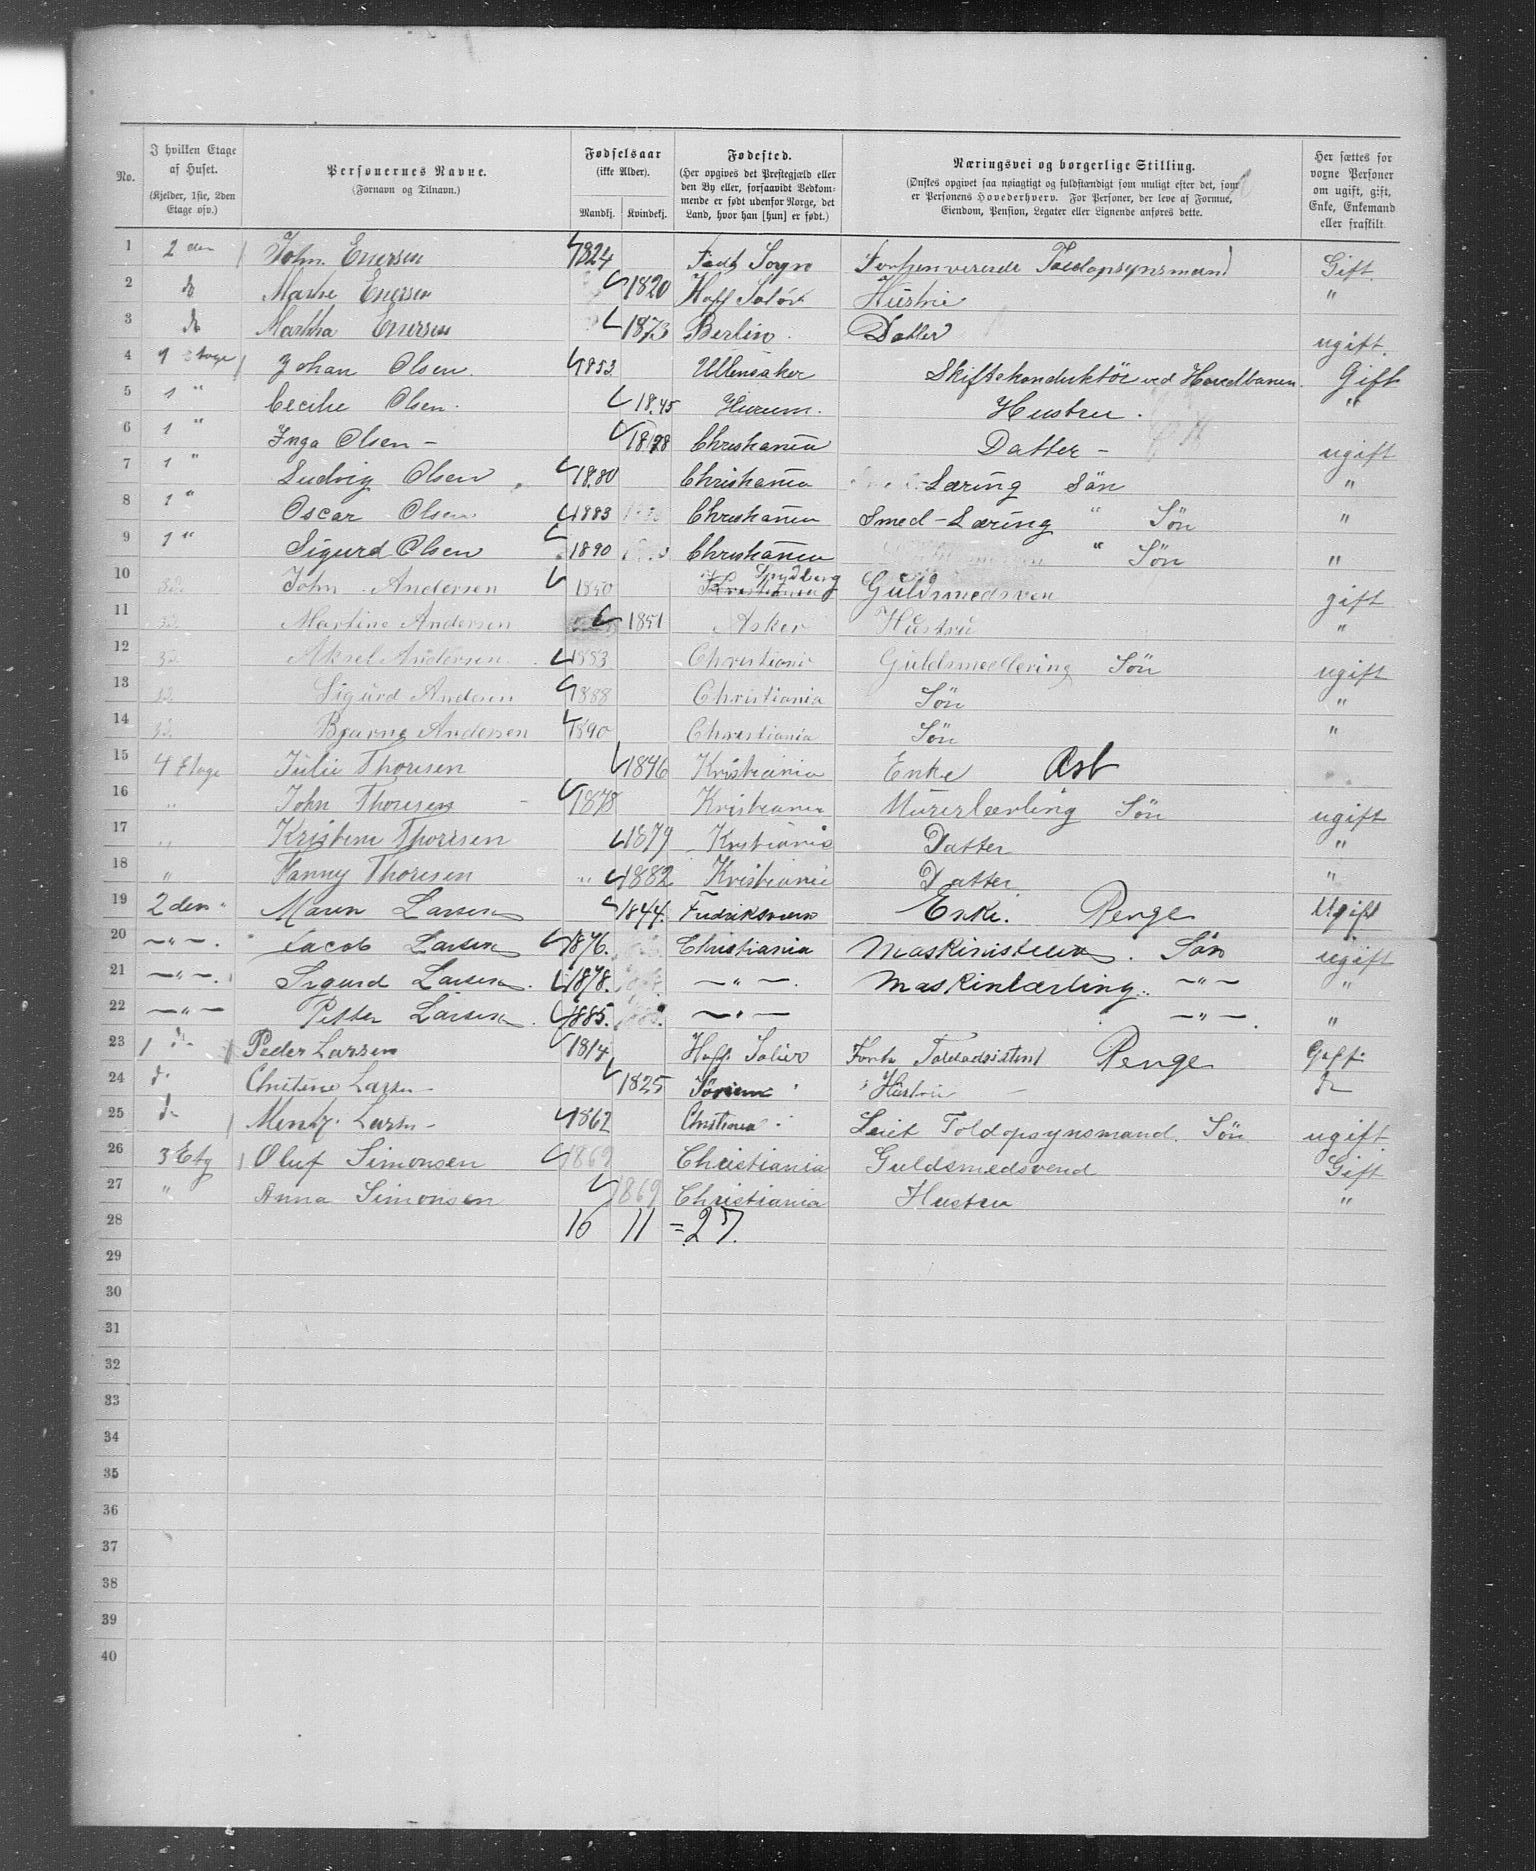 No. | I hvilken Etage af Huset. (Kjelder, 1ste, 2den Etage osv.) | Personernes Navne. (Fornavn og Tilnavn.) | Fødselsaar (ikke Alder). Mandkj. | Kvindekj. | Fødested. (Her opgives det Prestegjæld eller den By eller, forsaavidt Vedkommende er født udenfor Norge, det Land, hvor han [hun] er født.) | Næringsvei og borgerlige Stilling. (Ønskes opgivet saa nøiagtigt og fuldstændigt som muligt efter det, som er Personens Hovederhverv. For Personer, der leve af Formue, Eiendom, Pension, Legater eller Lignende anføres dette. | Her sættes for voxne Personer om ugift, gift, Enke, Enkemand eller fraskilt
1 2 den John Enersen 1824 Sogn Forhenværende Toldopsynsmand Gift
2 do Marthe Enersen 1820 Hoff Solør Hustru "
3 do Martha Enersen 1873 Berlin Datter ugift
4 1 Etage Johan Olsen 1853 Ullensaker Skiftekonduktör ved Hovedbanen Gift
5 1 " Cecilie Olsen 1845 Hurum Hustru "
6 1 " Inga Olsen 1878 Christiania Datter ugift
7 1 " Ludvig Olsen 1880 Christiania Læring Sön "
8 1 " Oscar Olsen 1883 Christiania Smed-Læring " Sön "
9 1 " Sigurd Olsen 1890 Christiania " Sön "
10 John Andersen 1850 Spydberg Guldsmedsven gift
11 Martine Andersen 1851 Asker Hustru "
12 Aksel Andersen 1883 Christiania Guldsmedlering Sön ugift
13 Sigurd Andersen 1888 Christiania Sön "
14 Bjarne Andersen 1890 Christiania Sön "
15 4 Etage Julie Thoresen 1846 Kristiania Enke Arb
16 " John Thoresen 1878 Kristiania Murerlærling Sön ugift
17 " Kristine Thoresen 1879 Kristiania Datter "
18 " Fanny Thoresen 1882 Kristiania Datter "
19 2 den Maren Larsen 1844 Fredriksværn Enke. Penge Ugift
20 — " — Jacob Larsen 1876. Christiania Maskinist Søn ugift
21 — " — Sigurd Larsen 1878. — " — Maskinlærling. — " — "
22 — " — Petter Larsen 1885. — " — — " — "
23 1 Peder Larsen 1814 Hoff Solør Forh. Toldassistent Penge Gift
24 do Christine Larsen 1825 Hustru do
25 do Mentz Larsen 1862 Christiania Toldopsynsmand Sön ugift
26 3 Etg Oluf Simonsen 1869 Christiania Guldsmedsvend Gift
27 " Anna Simonsen 1869 Christiania Hustru "
28 16 11 = 27.
29
30
31
32
33
34
35
36
37
38
39
40